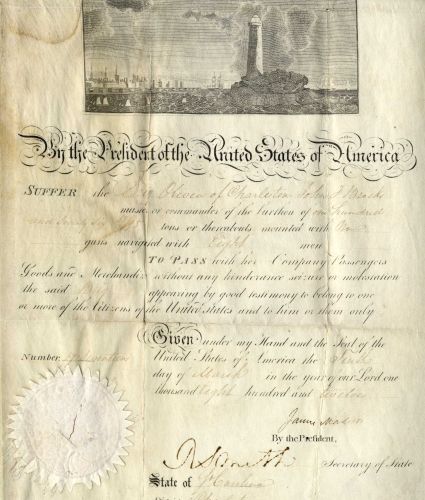 By the President of the United States of America
SUFFER the Brig Eleven of Charleston John
master or commander of the burthen of one hundred
tons or thereabouts mounted with
guns navigated with Eight men
TO PASS with her Company Passengers
Goods and Merchandize without any hinderance seizure or molestation
the said appearing by good testimony to belong to one
or more of the Citizens of the United States and to him or them only
Given under my Hand and the Seal of the
Number United States of America the
day of March in the year of our Lord one
thousand Eight hundred and
James Madison
By the President,
Secretary of State
State of